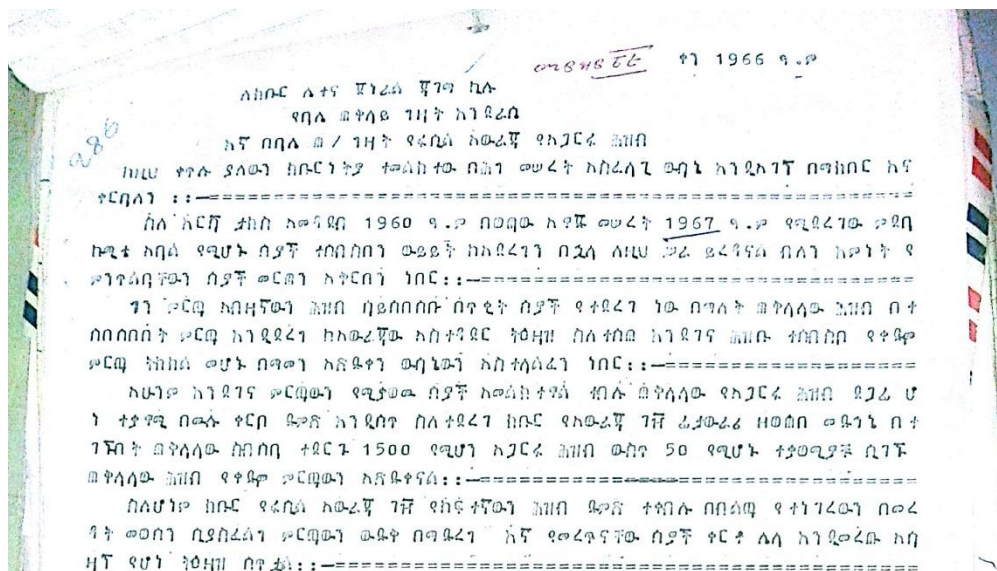 ቀን 1966 ዓ.ም
286
ለክቡር ሌተና ጀነራል ጃገማ ኬሎ
የባሌ ጠቅላይ ግዛት እንደራሴ
እኛ በባሌ ጠ/ግዛት የፋሲል አውራጃ የአጋርፋ ሕዝብ
ከዚህ ቀጥሎ ያለውን ክቡርነትዎ ተመልክተው በሕግ መሠረት አስፈላጊ ውሳኔ እንዲአገኝ በማክበር እና
ቀርባለን ::-==============================================
ስለ እርሻ ታክስ አመዳደብ 1960 ዓ.ም በወጣው አዋጅ መሠረት 1967 ዓ.ም የሚደረገው ምደባ
ኮሚቴ አባል የሚሆኑ ሰዎች ተሰብስበን ውይይት ከአደረግን በኋላ ለዚህ ሥራ ይረዳናል ብለን እምነት የ
ምንጥልባቸውን ሰዎች መርጠን አቅርበን ነበር::-====================
ግን ምርጫ አብዛኛውን ሕዝብ ባይሰበሰቡ በጥቂት ሰዎች የተደረገ ነው በማለት ጠቅላላው ሕዝብ በተ
ሰበሰበበት ምርጫ እንዲደረግ ከአውራጃው አስተዳደር ትዕዛዝ ስለተሰጠ እንደገና ሕዝቡ ተሰብስቦ የቀድሞ
ምርጫ ትክክል መሆኑ በማመን አጽድቀን ውሳኔውን አስተላልፈን ነበር::-================
አሁንም እንደገና ምርጫውን የሚያወጡ ሰዎች አመልክተዋል ተብሎ ጠቅላላው የአጋርፋ ሕዝብ ደጋፊ ሆ
ነ ተቃዋሚ በሙሉ ቀርቦ ድምጽ እንዲሰጥ ስለተደረገ ክቡር የአውራጃ ገዥ ፊታውራሪ ዘውዴ መድኅኔ በተ
ገኙበት ጠቅላላው ስብሰባ ተደርጎ 1500 የሚሆን አጋርፋ ሕዝብ ውስጥ 50 የሚሆኑ ተቃዋሚዎች ሲገኙ
ጠቅላላው ሕዝብ የቀድሞ ምርጫውን አጽድቀናል::-==============================
ስለሆነም ክቡር የፋሲል አውራጃ ገዥ የከፍተኛውን ሕዝብ ድምጽ ተቀብሎ በበላዔ የተነገረውን በመረ
ዳት መወሰን ሲያስፈልግ ምርጫውን ውድቅ በማድረግ እኛ የመረጥናቸው ሰዎች ቀርቶ ሌላ እንዲመረጡ አስ
ዛኝ የሆነ ትዕዛዝ ሰጥቷል::-==========================================